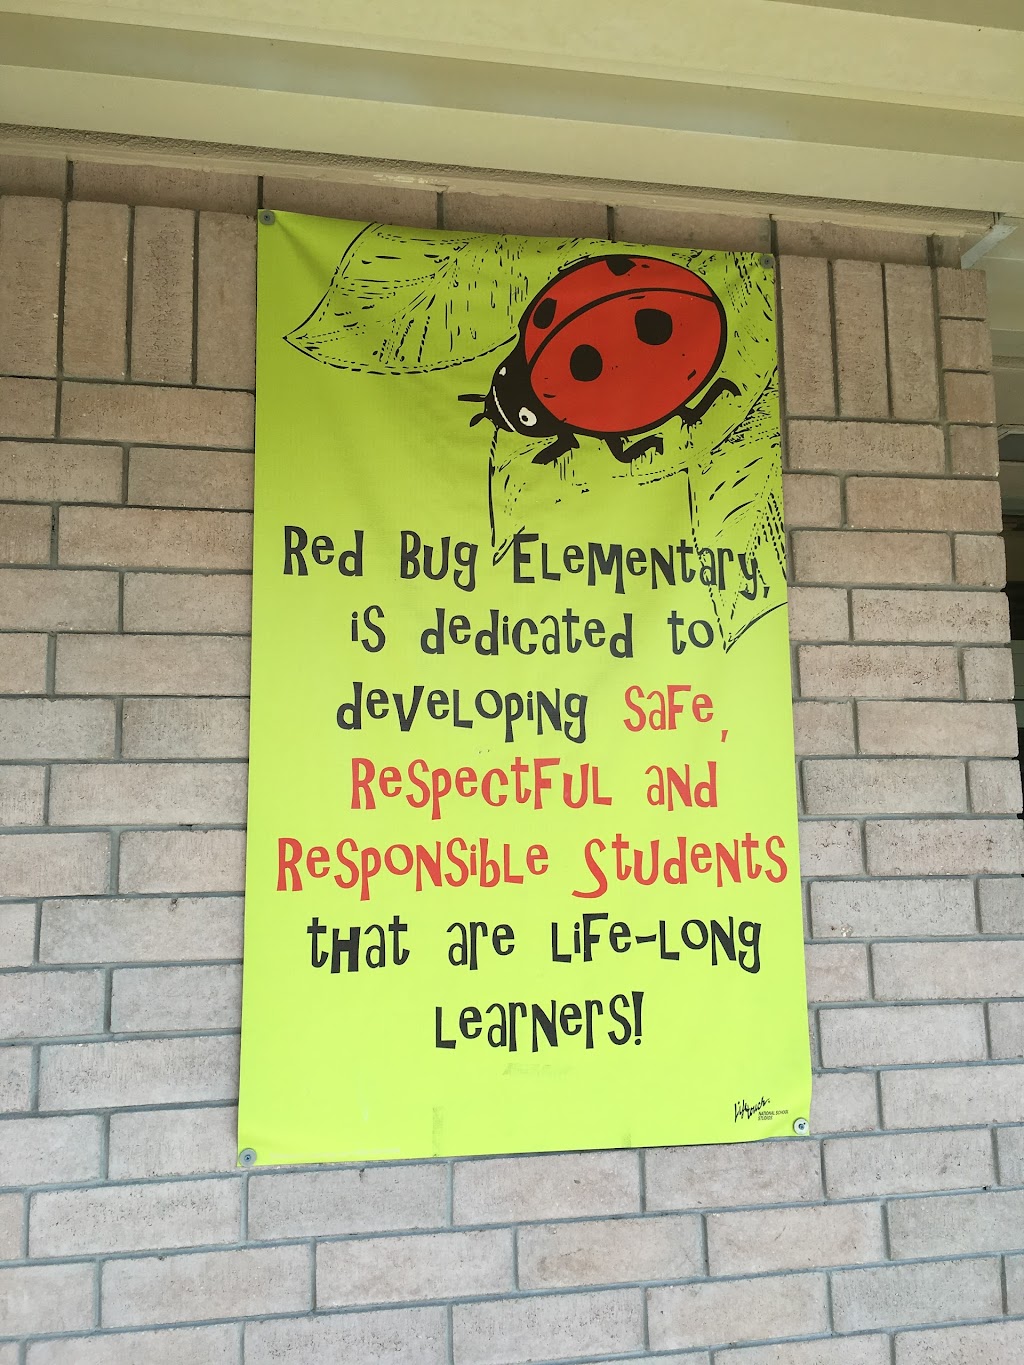 Red Bug Elementary,
is dedicated to
developing safe,
Respectful and
Responsible Students
that are life-long
learners!
Lifetouch.
NATIONAL SCHOOL
STUDIOS